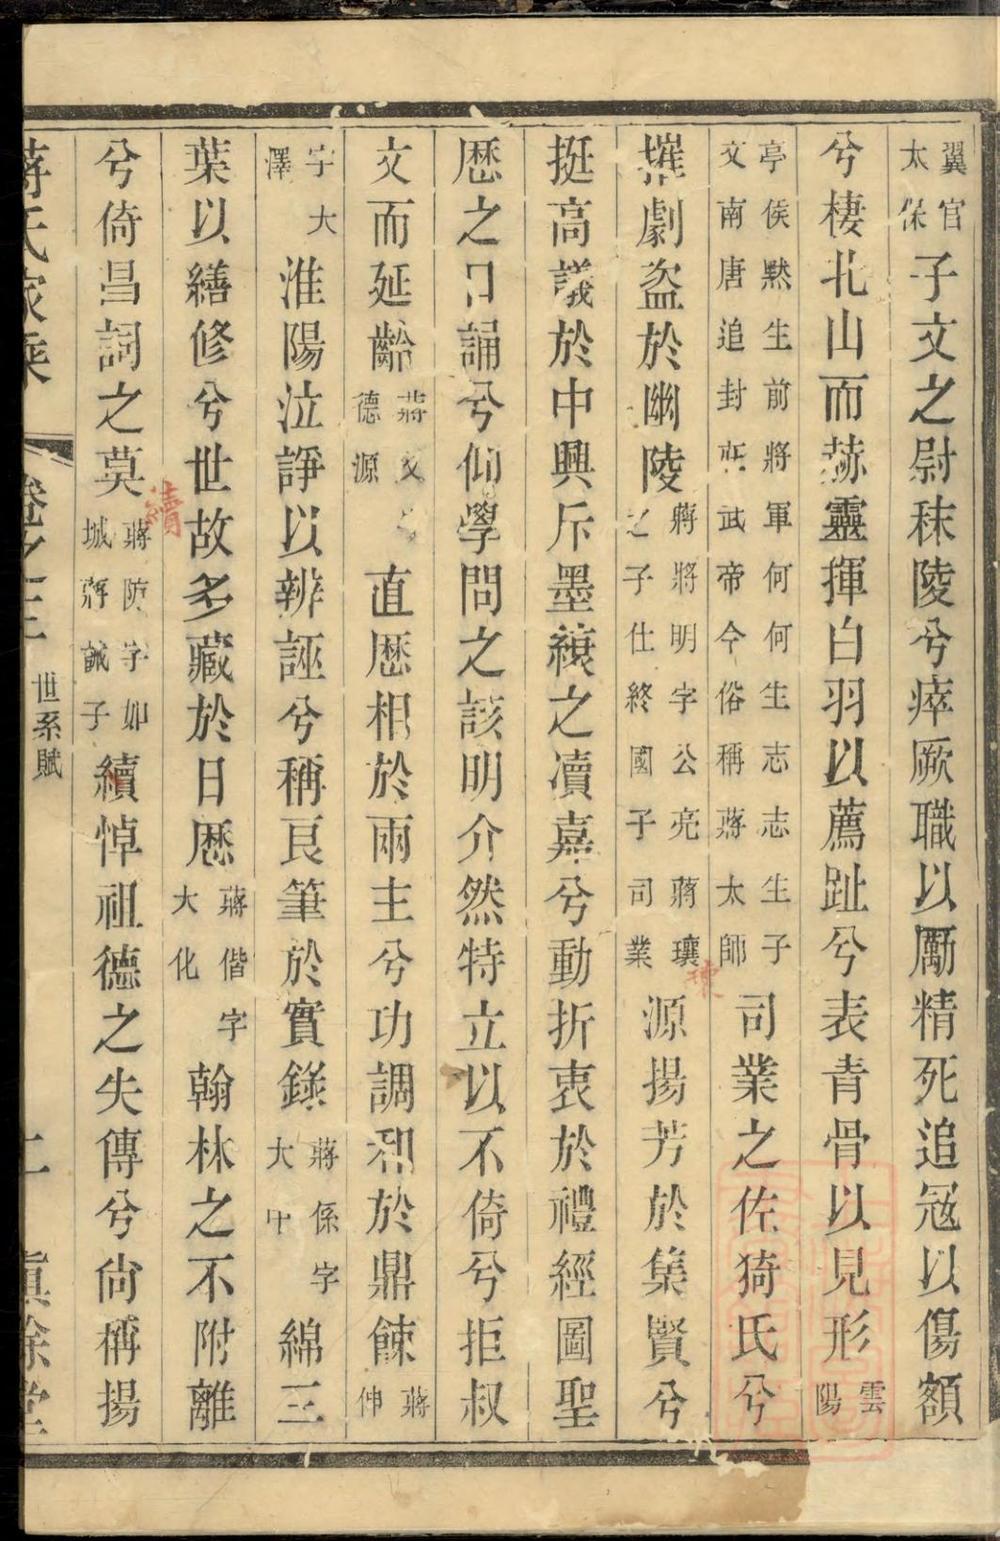 翼官太保子文之尉秣陵兮瘁厥職以勵精死追冦以傷額
兮棲北山而赫靈揮白羽以薦趾兮表青骨以見形雲陽
亭侯默生前將軍何何生志志生子文南唐追封莊武帝今俗稱蔣太師司業之佐猗氏兮
撰劇盜於幽陵蔣將明字公亮蔣瓖之子仕終國子司業源揚芳於集賢兮
挺高議於中興斥墨縗之凟嘉兮動折衷於禮經圖聖
歷之口誦兮仰學問之該明介然特立以不倚兮拒叔
文而延齡蔣乂德源直歷相於兩主兮功調和於鼎餗蔣伸
字大澤淮陽泣諍以辨誣兮稱良筆於實錄蔣係字大中綿三
葉以繕修兮世故多藏於日歷蔣偕字大化翰林之不附離
兮倚昌詞之莫蔣防字如城蔣誠子續悼祖德之失傳兮尙稱揚
續
蔣氏家乘
卷之三
世系賦
慎餘堂